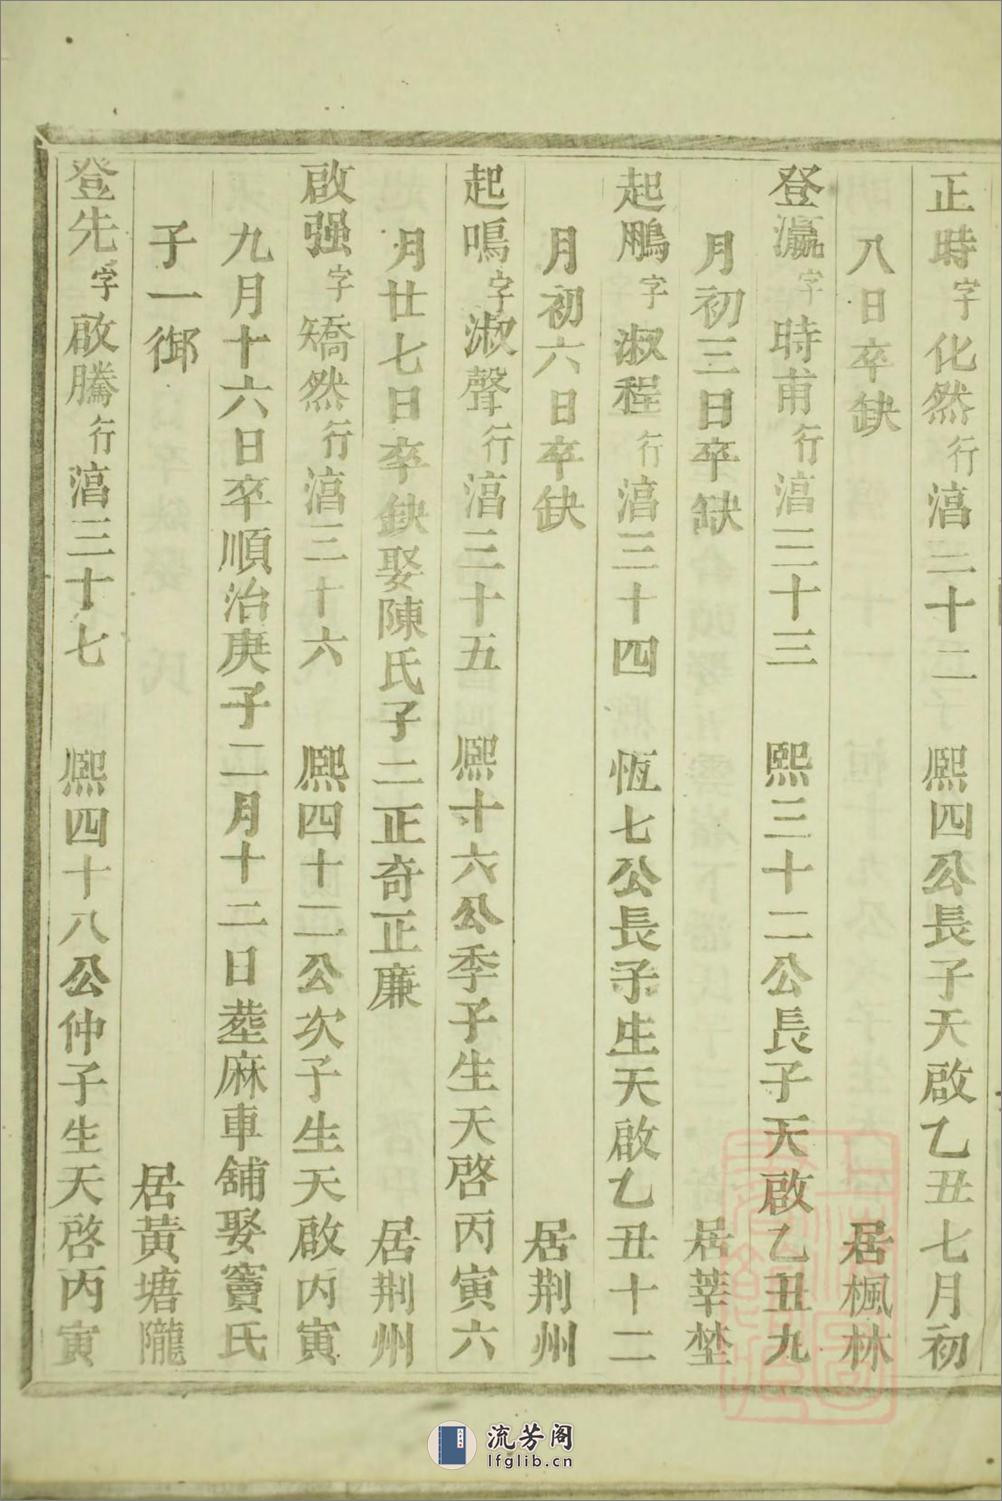 正時字化然行湻三十二　熙四公長子天啟乙丑七月初
八日卒缺　居楓林
登瀛字時甫行湻三十三　熙三十二公長子天啟乙丑九
月初三日卒缺　居莘埜
起鵬字淑程行湻三十四　恆七公長子生天啟乙丑十二
月初六日卒缺　居荆州
起鳴字淑聲行湻三十五　熙十六公季子生天啓丙寅六
月廿七日卒缺娶陳氏子二正奇正廉　居荆州
啟强字矯然行湻三十六　熙四十二公次子生天啟丙寅
九月十六日卒順治庚子二月十二日塟麻車舖娶竇氏
子一御　居黃塘隴
登先字啟騰行湻三十七　熙四十八公仲子生天啓丙寅
流芳阁
lfglib.cn